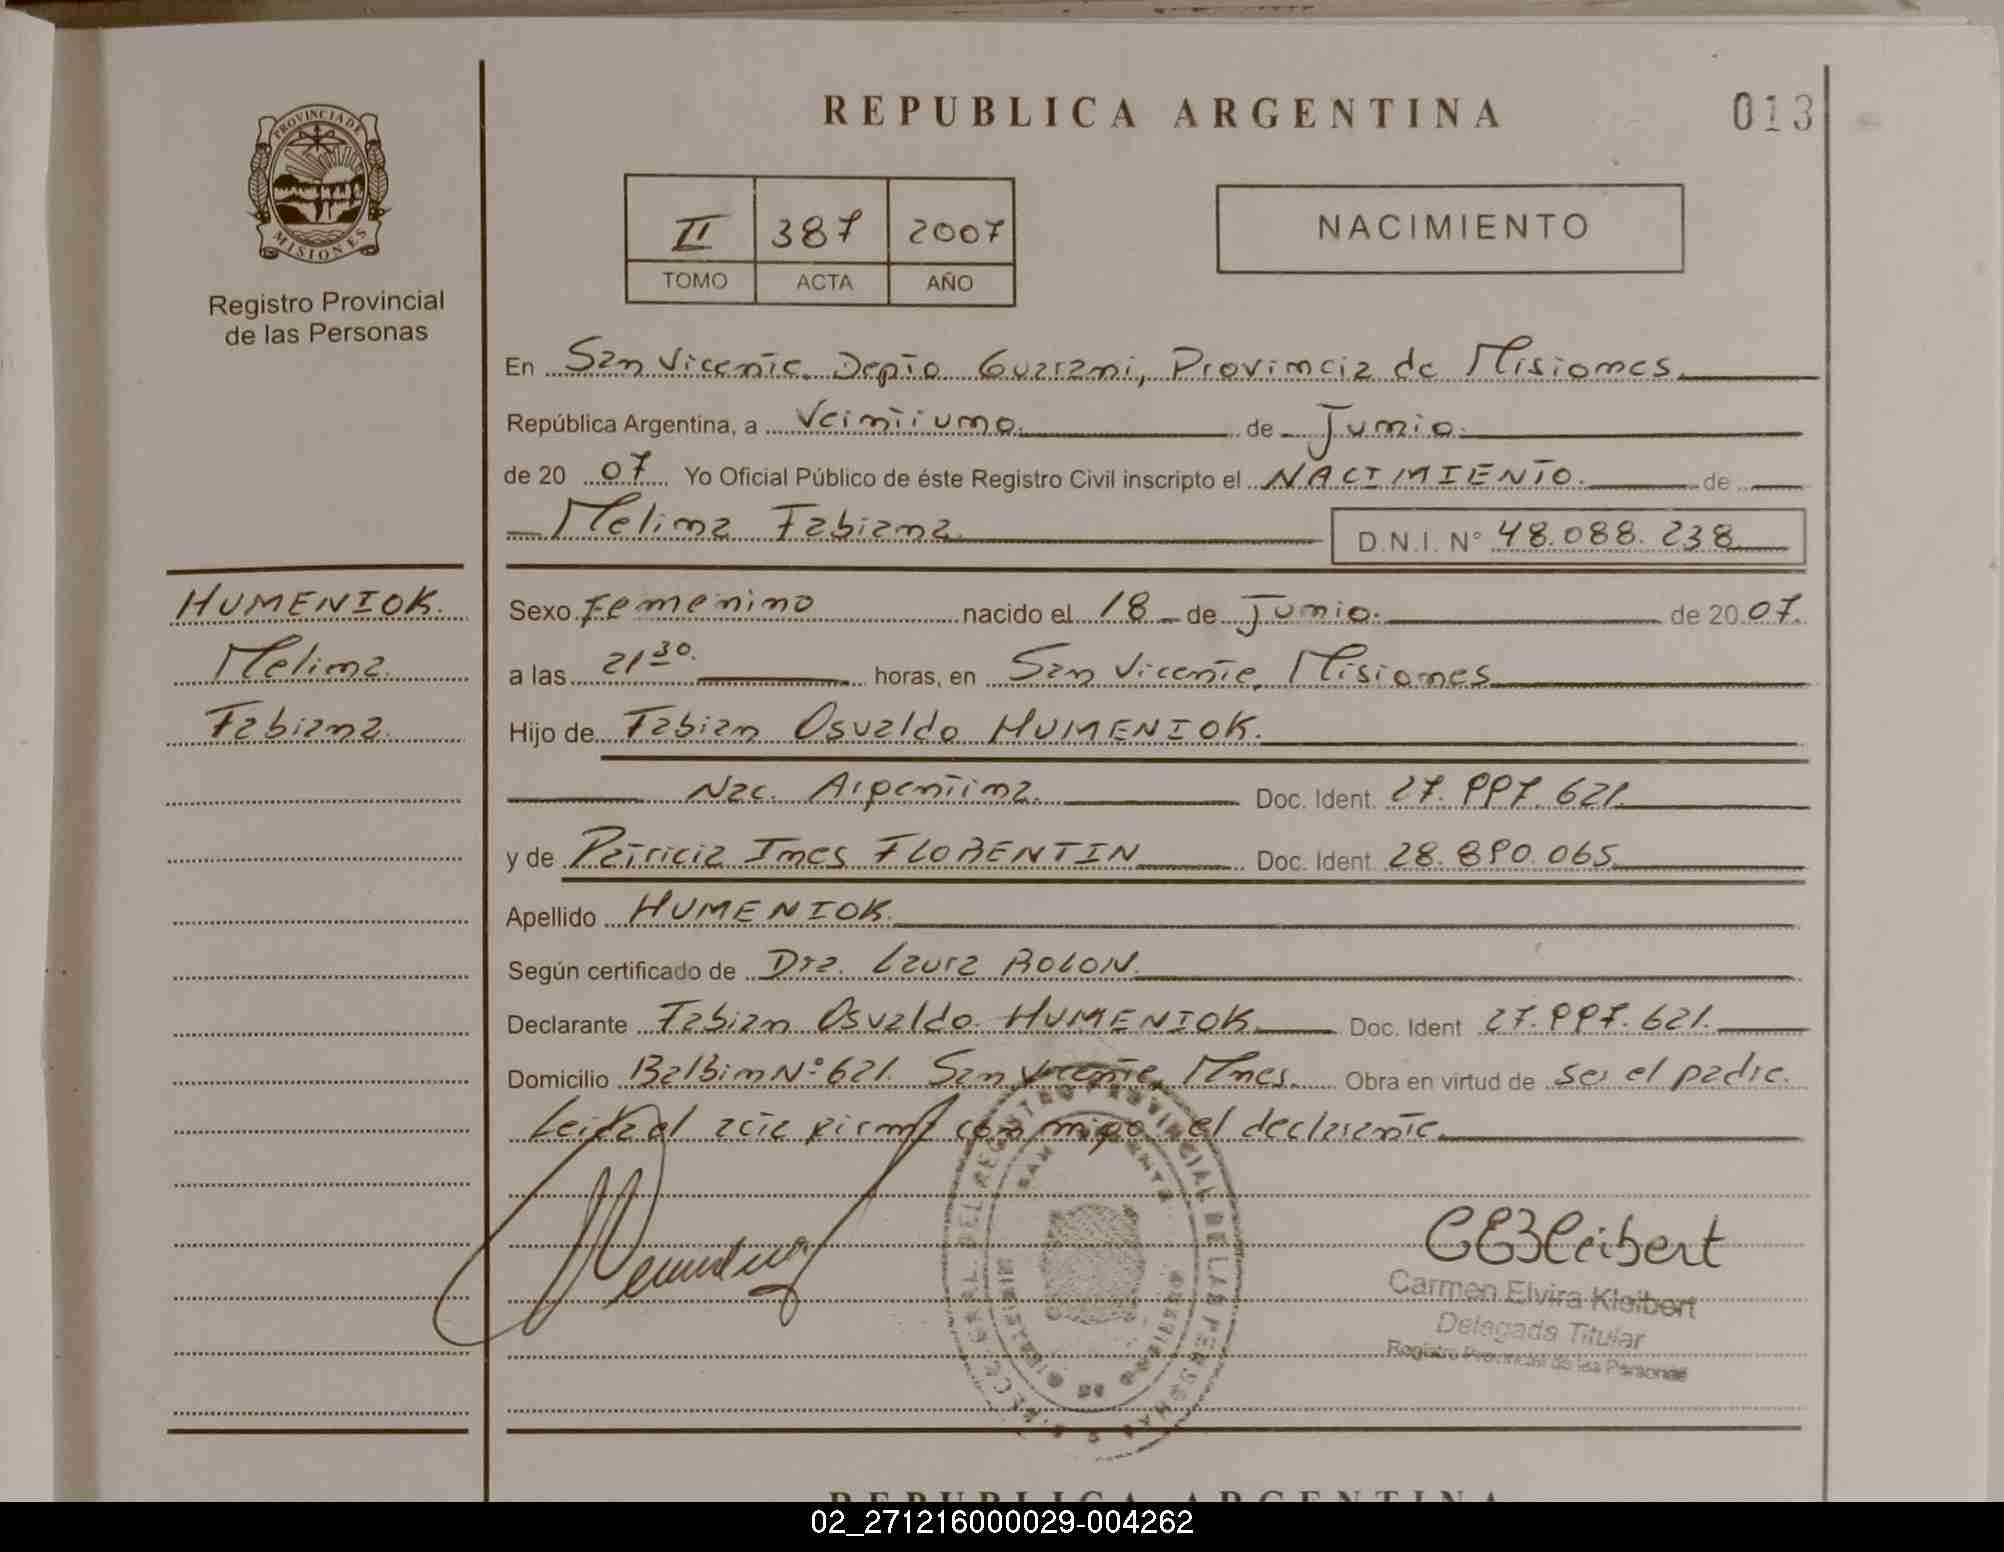 REPUBLICA ARGENTINA
013
PROVINCIA DE
MISIONES
Registro Provincial
de las Personas
II 387 2007
TOMO ACTA AÑO
NACIMIENTO
En San Vicente, Depto Guarani, Provincia de Misiones.
República Argentina, a Veintiuno. de Junio.
de 20 07 Yo Oficial Público de éste Registro Civil inscripto el NACIMIENTO. de
Melina Fabiana
D.N.I. N° 48.088.238
HUMENIOK.
Melina
Fabiana
Sexo Femenino nacido el 18 de Junio. de 20 07.
a las 21 30. horas, en San Vicente, Misiones
Hijo de Fabian Osvaldo HUMENIOK.
Nac. Argentina. Doc. Ident. 27.997.621.
y de Patricia Ines FLORENTIN Doc. Ident. 28.890.065
Apellido HUMENIOK.
Según certificado de Dra. Laura ROLON.
Declarante Fabian Osvaldo HUMENIOK Doc. Ident 27.997.621.
Domicilio Balbin N° 621. San Vicente, Mnes. Obra en virtud de ser el padre.
Leida el acta firma conmigo el declarante.
CEKleibert
Carmen Elvira Kleibert
Delegada Titular
Registro Provincial de las Personas
REPUBLICA ARGENTINA
02_271216000029-004262